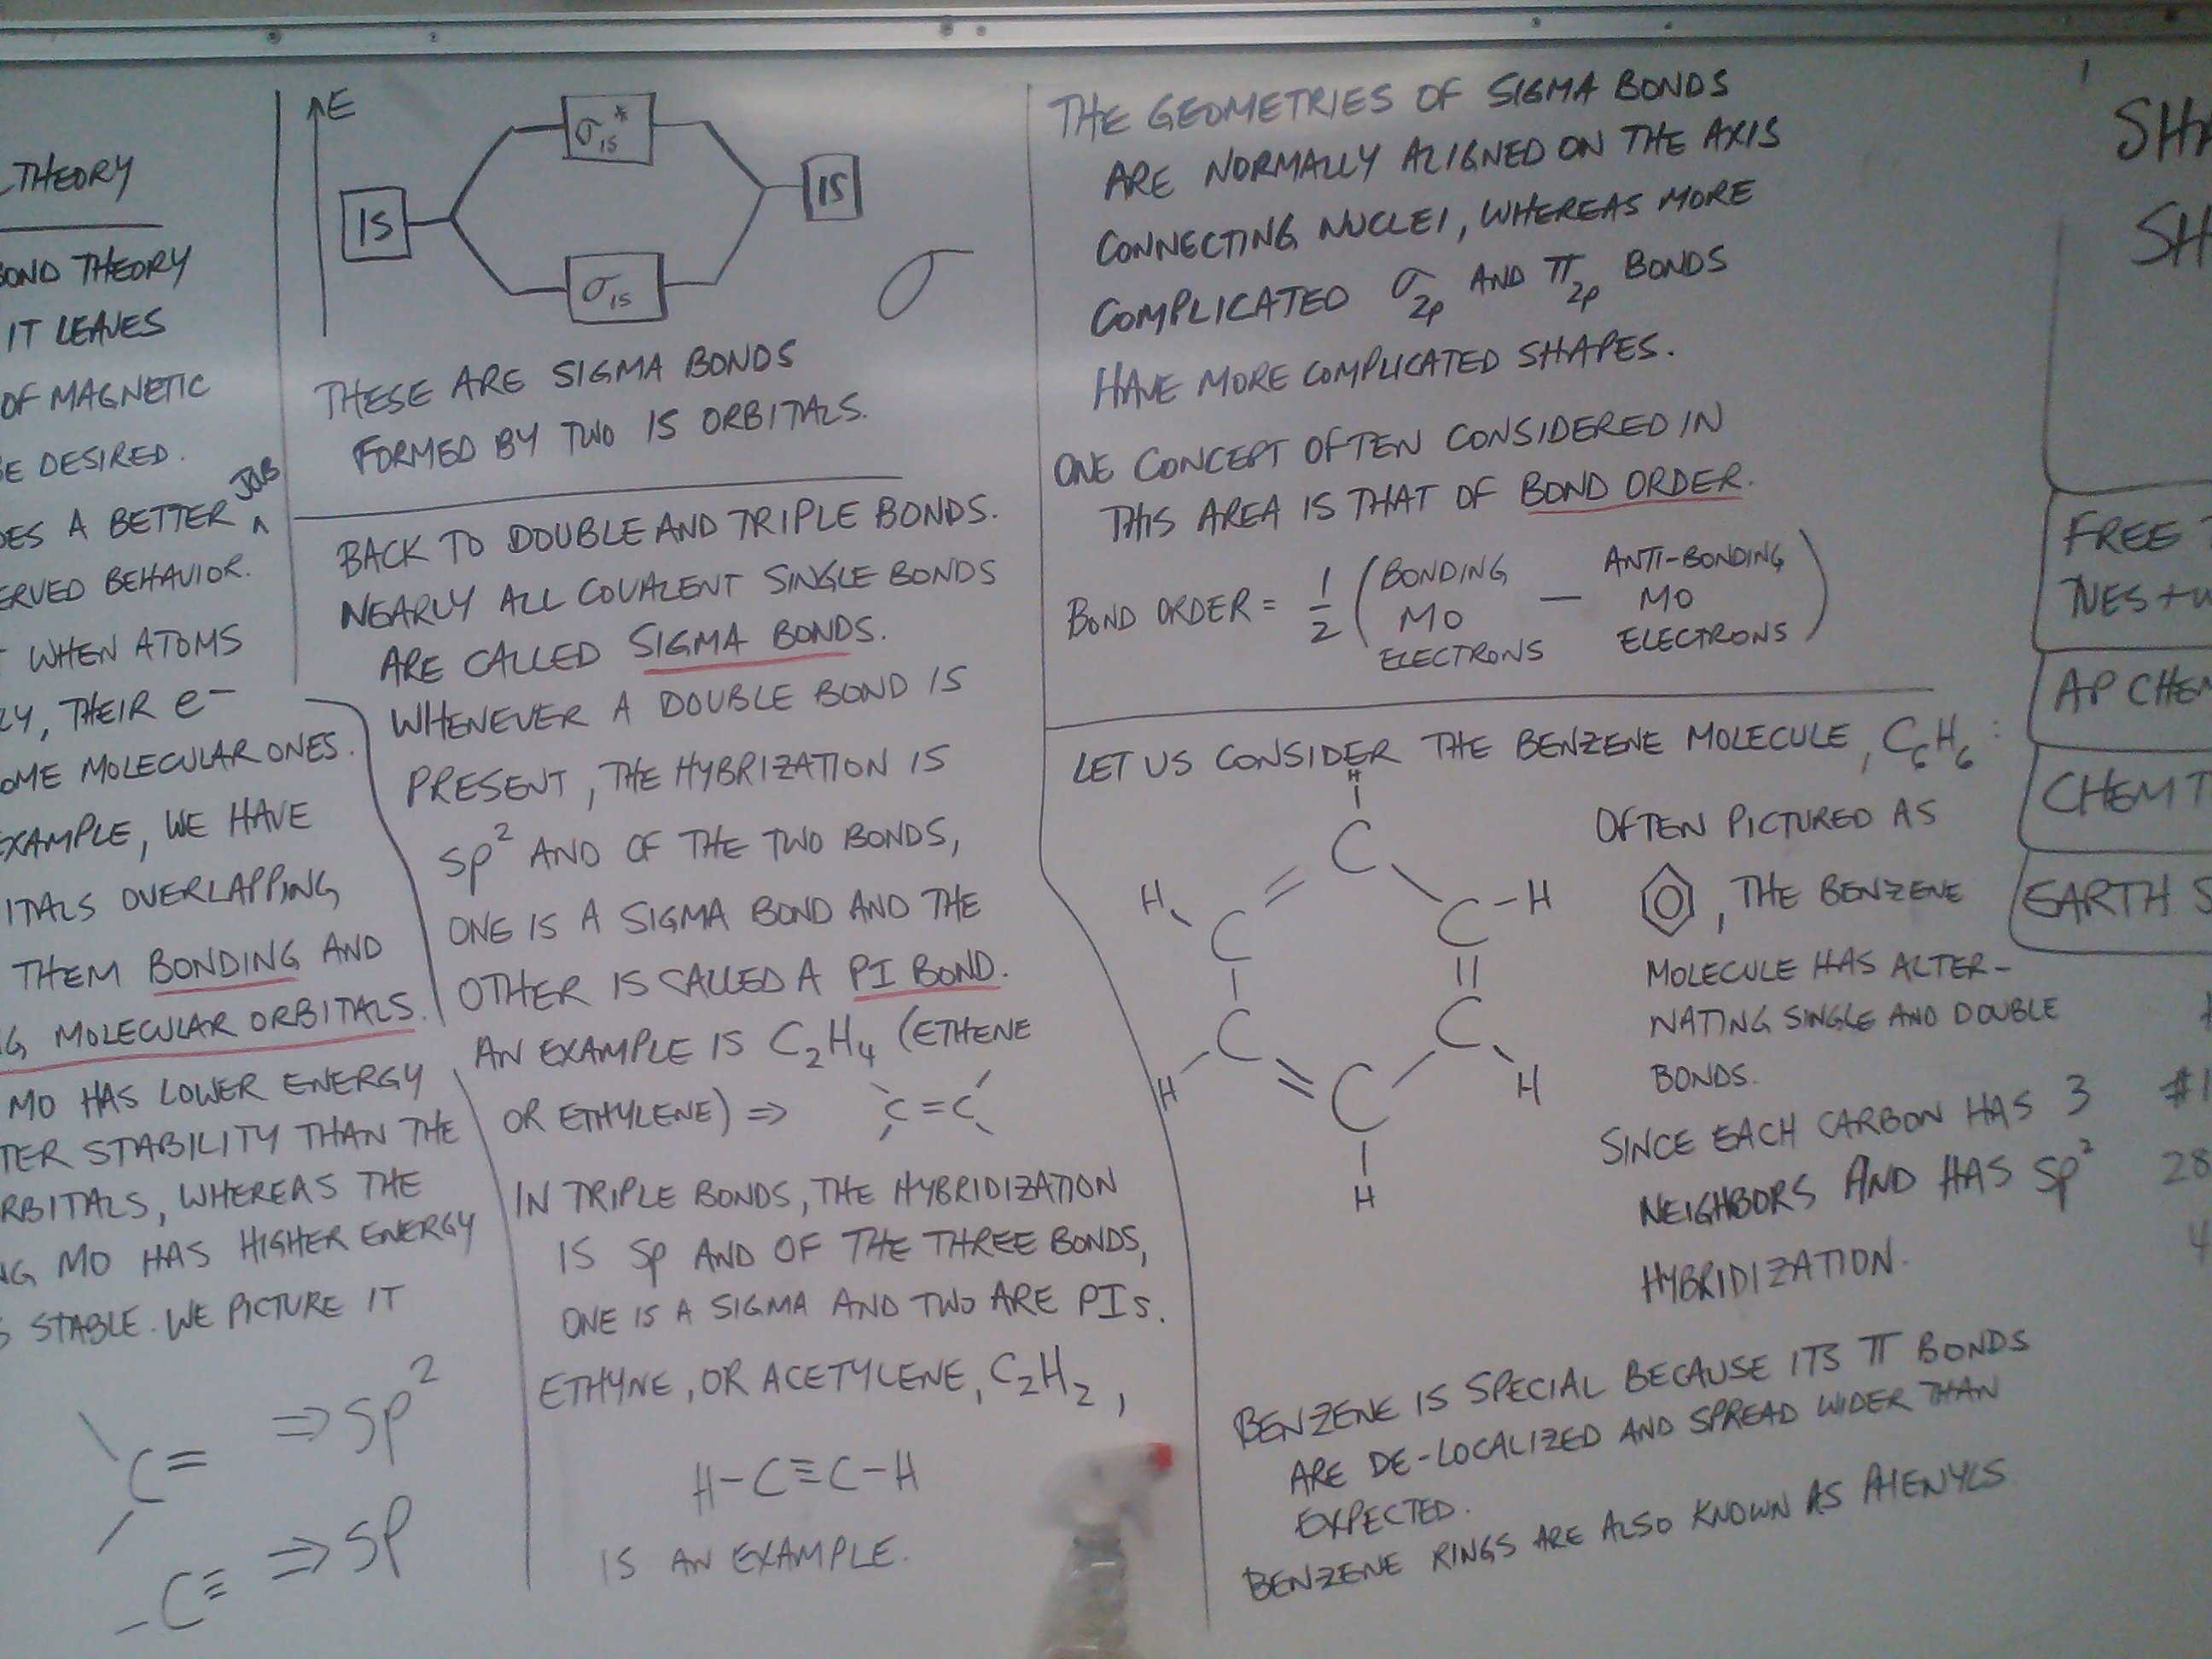 THEORY
BOND THEORY
IT LEAVES
OF MAGNETIC
BE DESIRED.
DOES A BETTER JOB
BEHAVIOR.
WHEN ATOMS
THEIR e-
MOLECULAR ONES.
EXAMPLE, WE HAVE
OVERLAPPING
THEM BONDING AND
MOLECULAR ORBITALS.
MO HAS LOWER ENERGY
STABILITY THAN THE
ORBITALS, WHEREAS THE
MO HAS HIGHER ENERGY
STABLE. WE PICTURE IT
C= ⇒ sp²
-C≡ ⇒ sp
↑E
σ1s*
1S
1S
σ1s
σ
THESE ARE SIGMA BONDS
FORMED BY TWO 1S ORBITALS.
BACK TO DOUBLE AND TRIPLE BONDS.
NEARLY ALL COVALENT SINGLE BONDS
ARE CALLED SIGMA BONDS.
WHENEVER A DOUBLE BOND IS
PRESENT, THE HYBRIZATION IS
sp² AND OF THE TWO BONDS,
ONE IS A SIGMA BOND AND THE
OTHER IS CALLED A PI BOND.
AN EXAMPLE IS C₂H₄ (ETHENE
OR ETHYLENE) ⇒ C=C
IN TRIPLE BONDS, THE HYBRIDIZATION
IS sp AND OF THE THREE BONDS,
ONE IS A SIGMA AND TWO ARE PIs.
ETHYNE, OR ACETYLENE, C₂H₂,
H-C≡C-H
IS AN EXAMPLE.
THE GEOMETRIES OF SIGMA BONDS
ARE NORMALLY ALIGNED ON THE AXIS
CONNECTING NUCLEI, WHEREAS MORE
COMPLICATED σ2p AND π2p BONDS
HAVE MORE COMPLICATED SHAPES.
ONE CONCEPT OFTEN CONSIDERED IN
THIS AREA IS THAT OF BOND ORDER.
BOND ORDER = 1/2 (BONDING MO ELECTRONS — ANTI-BONDING MO ELECTRONS)
LET US CONSIDER THE BENZENE MOLECULE, C₆H₆:
H
C
H C C-H
C C
H C H
H
OFTEN PICTURED AS
, THE BENZENE
MOLECULE HAS ALTER-
NATING SINGLE AND DOUBLE
BONDS.
SINCE EACH CARBON HAS 3
NEIGHBORS AND HAS sp²
HYBRIDIZATION.
BENZENE IS SPECIAL BECAUSE ITS π BONDS
ARE DE-LOCALIZED AND SPREAD WIDER THAN
EXPECTED.
BENZENE RINGS ARE ALSO KNOWN AS PHENYLS
FREE
AP CHEM
CHEM
EARTH S
#1
28
4